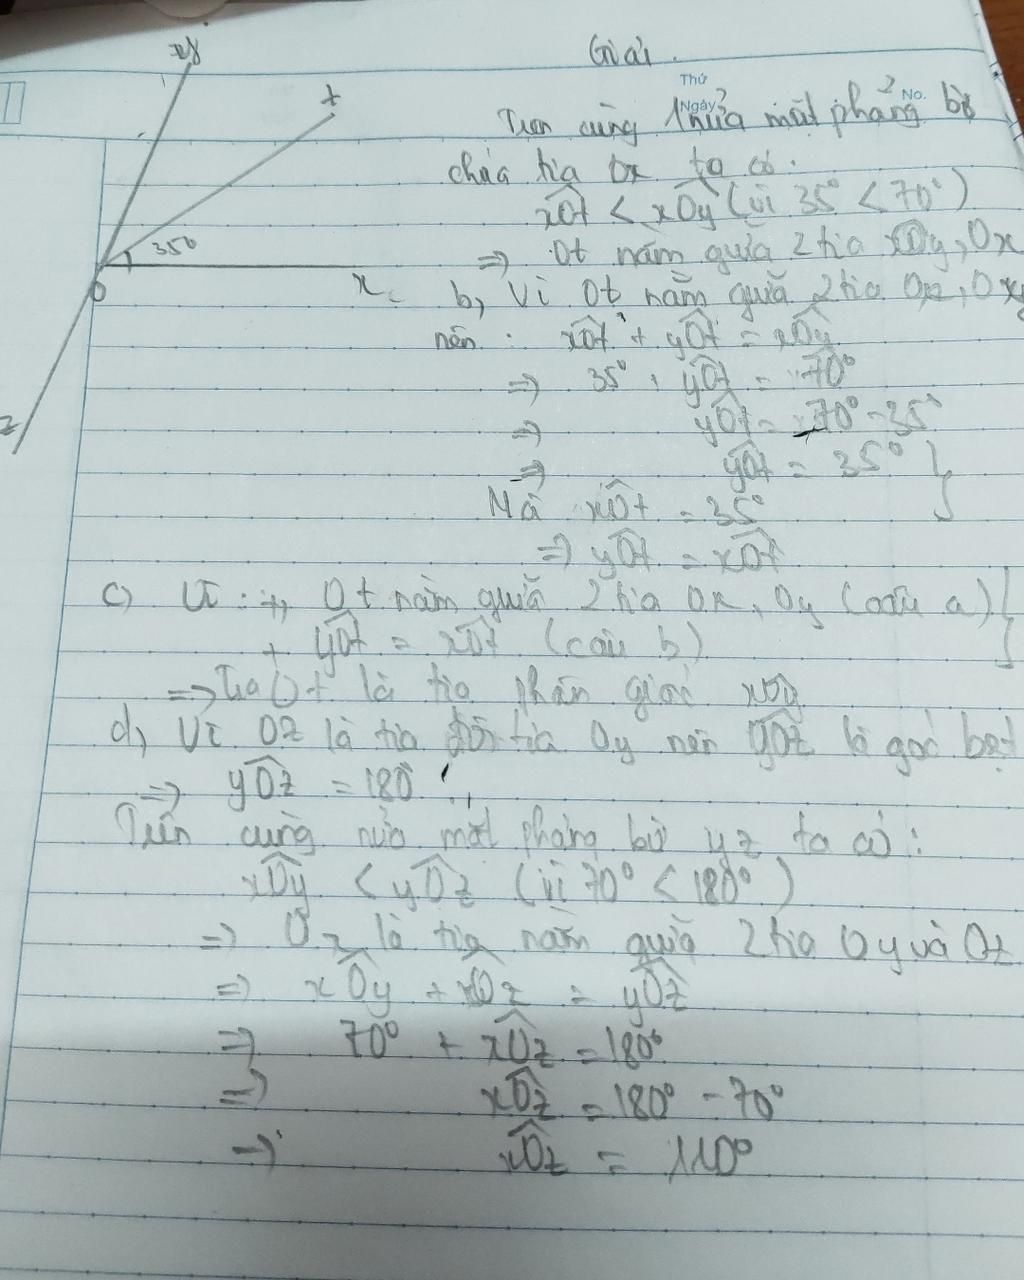 Giải.
Thứ
Ngày
No.
Trên cùng 1 nửa mặt phẳng bờ
chứa tia Ox ta có:
xOt < xOy (vì 35° < 70°)
⇒ Ot nằm giữa 2 tia Oy, Ox
b, Vì Ot nằm giữa 2 tia Ox, Oy
nên : xOt + yOt = xOy
⇒ 35° + yOt = 70°
⇒ yOt = 70° - 35°
⇒ yOt = 35° }
Mà xOt = 35°
⇒ yOt = xOt
c) Vì : + Ot nằm giữa 2 tia Ox, Oy (câu a) }
+ yOt = xOt (câu b)
⇒ Tia Ot là tia phân giác xOy
d, Vì Oz là tia đối tia Oy nên yOz là góc bẹt
⇒ yOz = 180°
Trên cùng nửa mặt phẳng bờ yz ta có :
xOy < yOz (vì 70° < 180°)
⇒ Ox là tia nằm giữa 2 tia Oy và Oz
⇒ xOy + xOz = yOz
⇒ 70° + xOz = 180°
⇒ xOz = 180° - 70°
⇒ xOz = 110°
y
t
35°
O
x
z